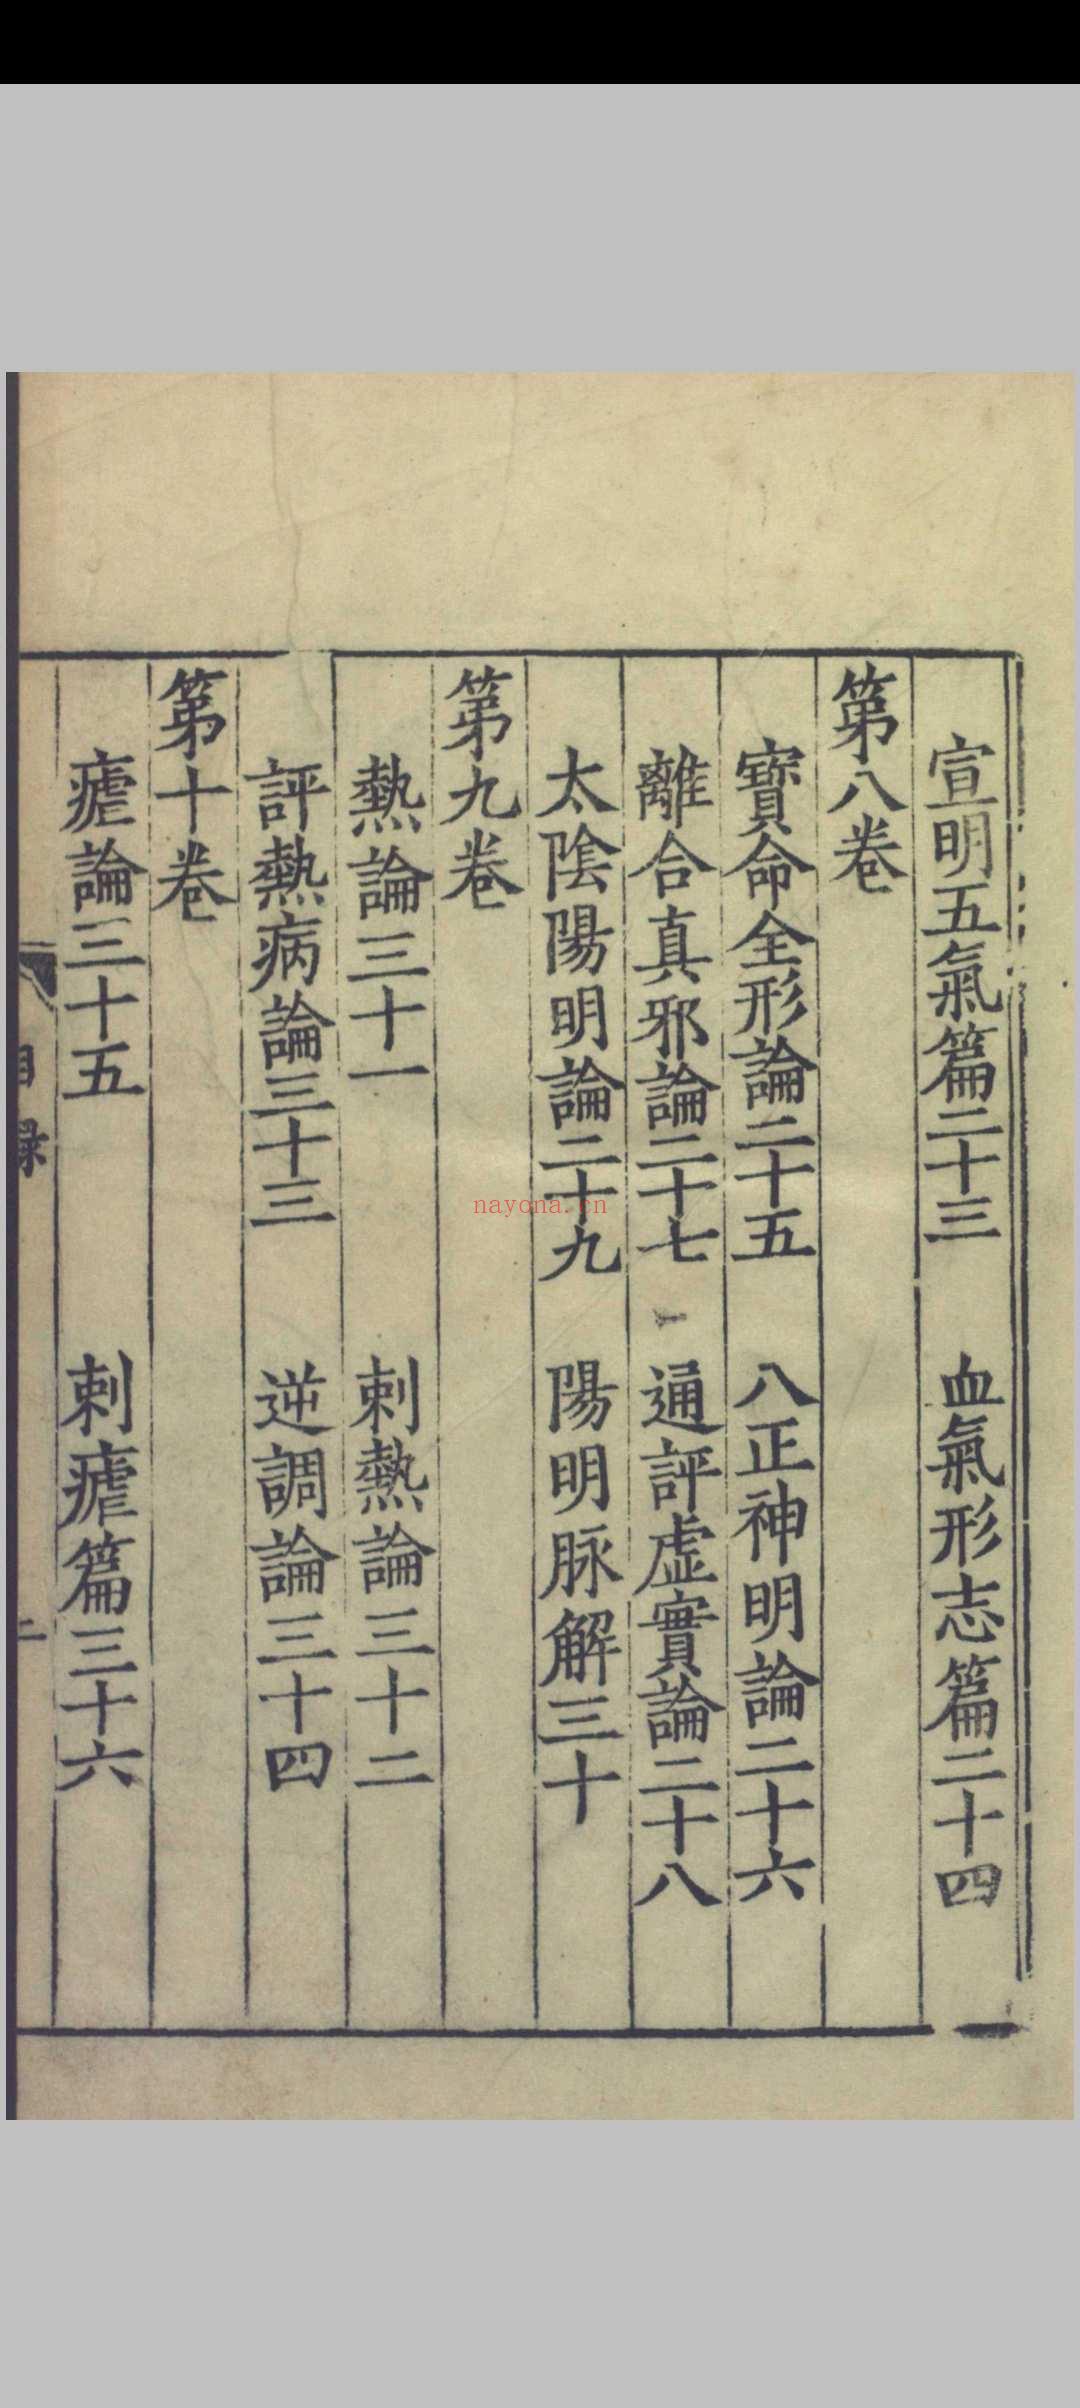 宣明五氣篇二十三 血氣形志篇二十四
第八卷
寶命全形論二十五 八正神明論二十六
離合真邪論二十七 通評虛實論二十八
太陰陽明論二十九 陽明脉解三十
第九卷
熱論三十一 刺熱論三十二
評熱病論三十三 逆調論三十四
第十卷
瘧論三十五 刺瘧篇三十六
目錄
二
nayona.cn